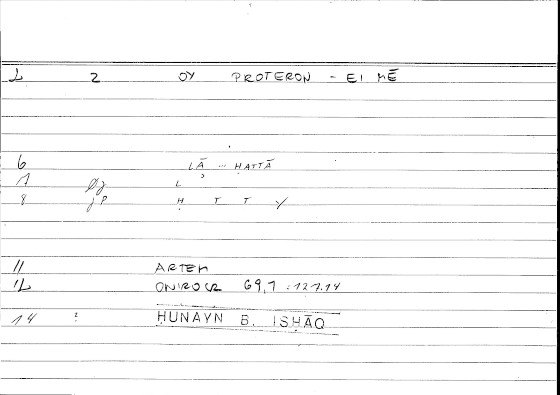 2 2 OY PROTERON - EI MĒ
6 LĀ ... ḤATTĀ
7 L
8 jP Ḥ T T Y
11 ARTEM
12 ONIROCR 69,1 : 127.14
14 : ḤUNAYN B. ISḤĀQ